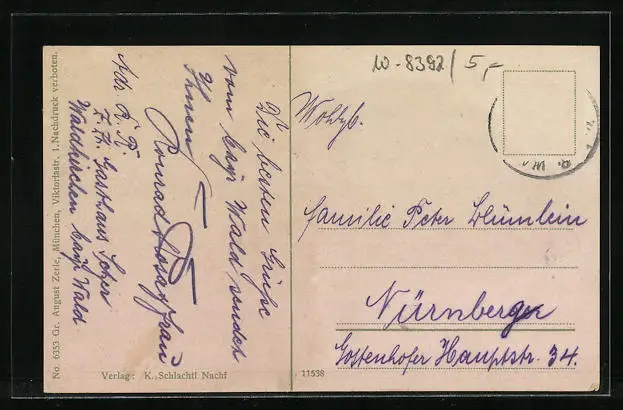 W-8392/5,-
Wohlg.
Familie Peter Blümlein
Nürnberg
Gostenhofer Hauptstr. 34.
Die besten Grüße
vom bayr Wald sendet
Ihnen
Konrad Frau
Adr. K. R.
z. Z. Gasthaus
Waldkirchen bayr Wald
No. 6353 Gr. August Zerle, München, Viktoriastr. 1. Nachdruck verboten.
Verlag: K. Schlachtl Nachf
11538